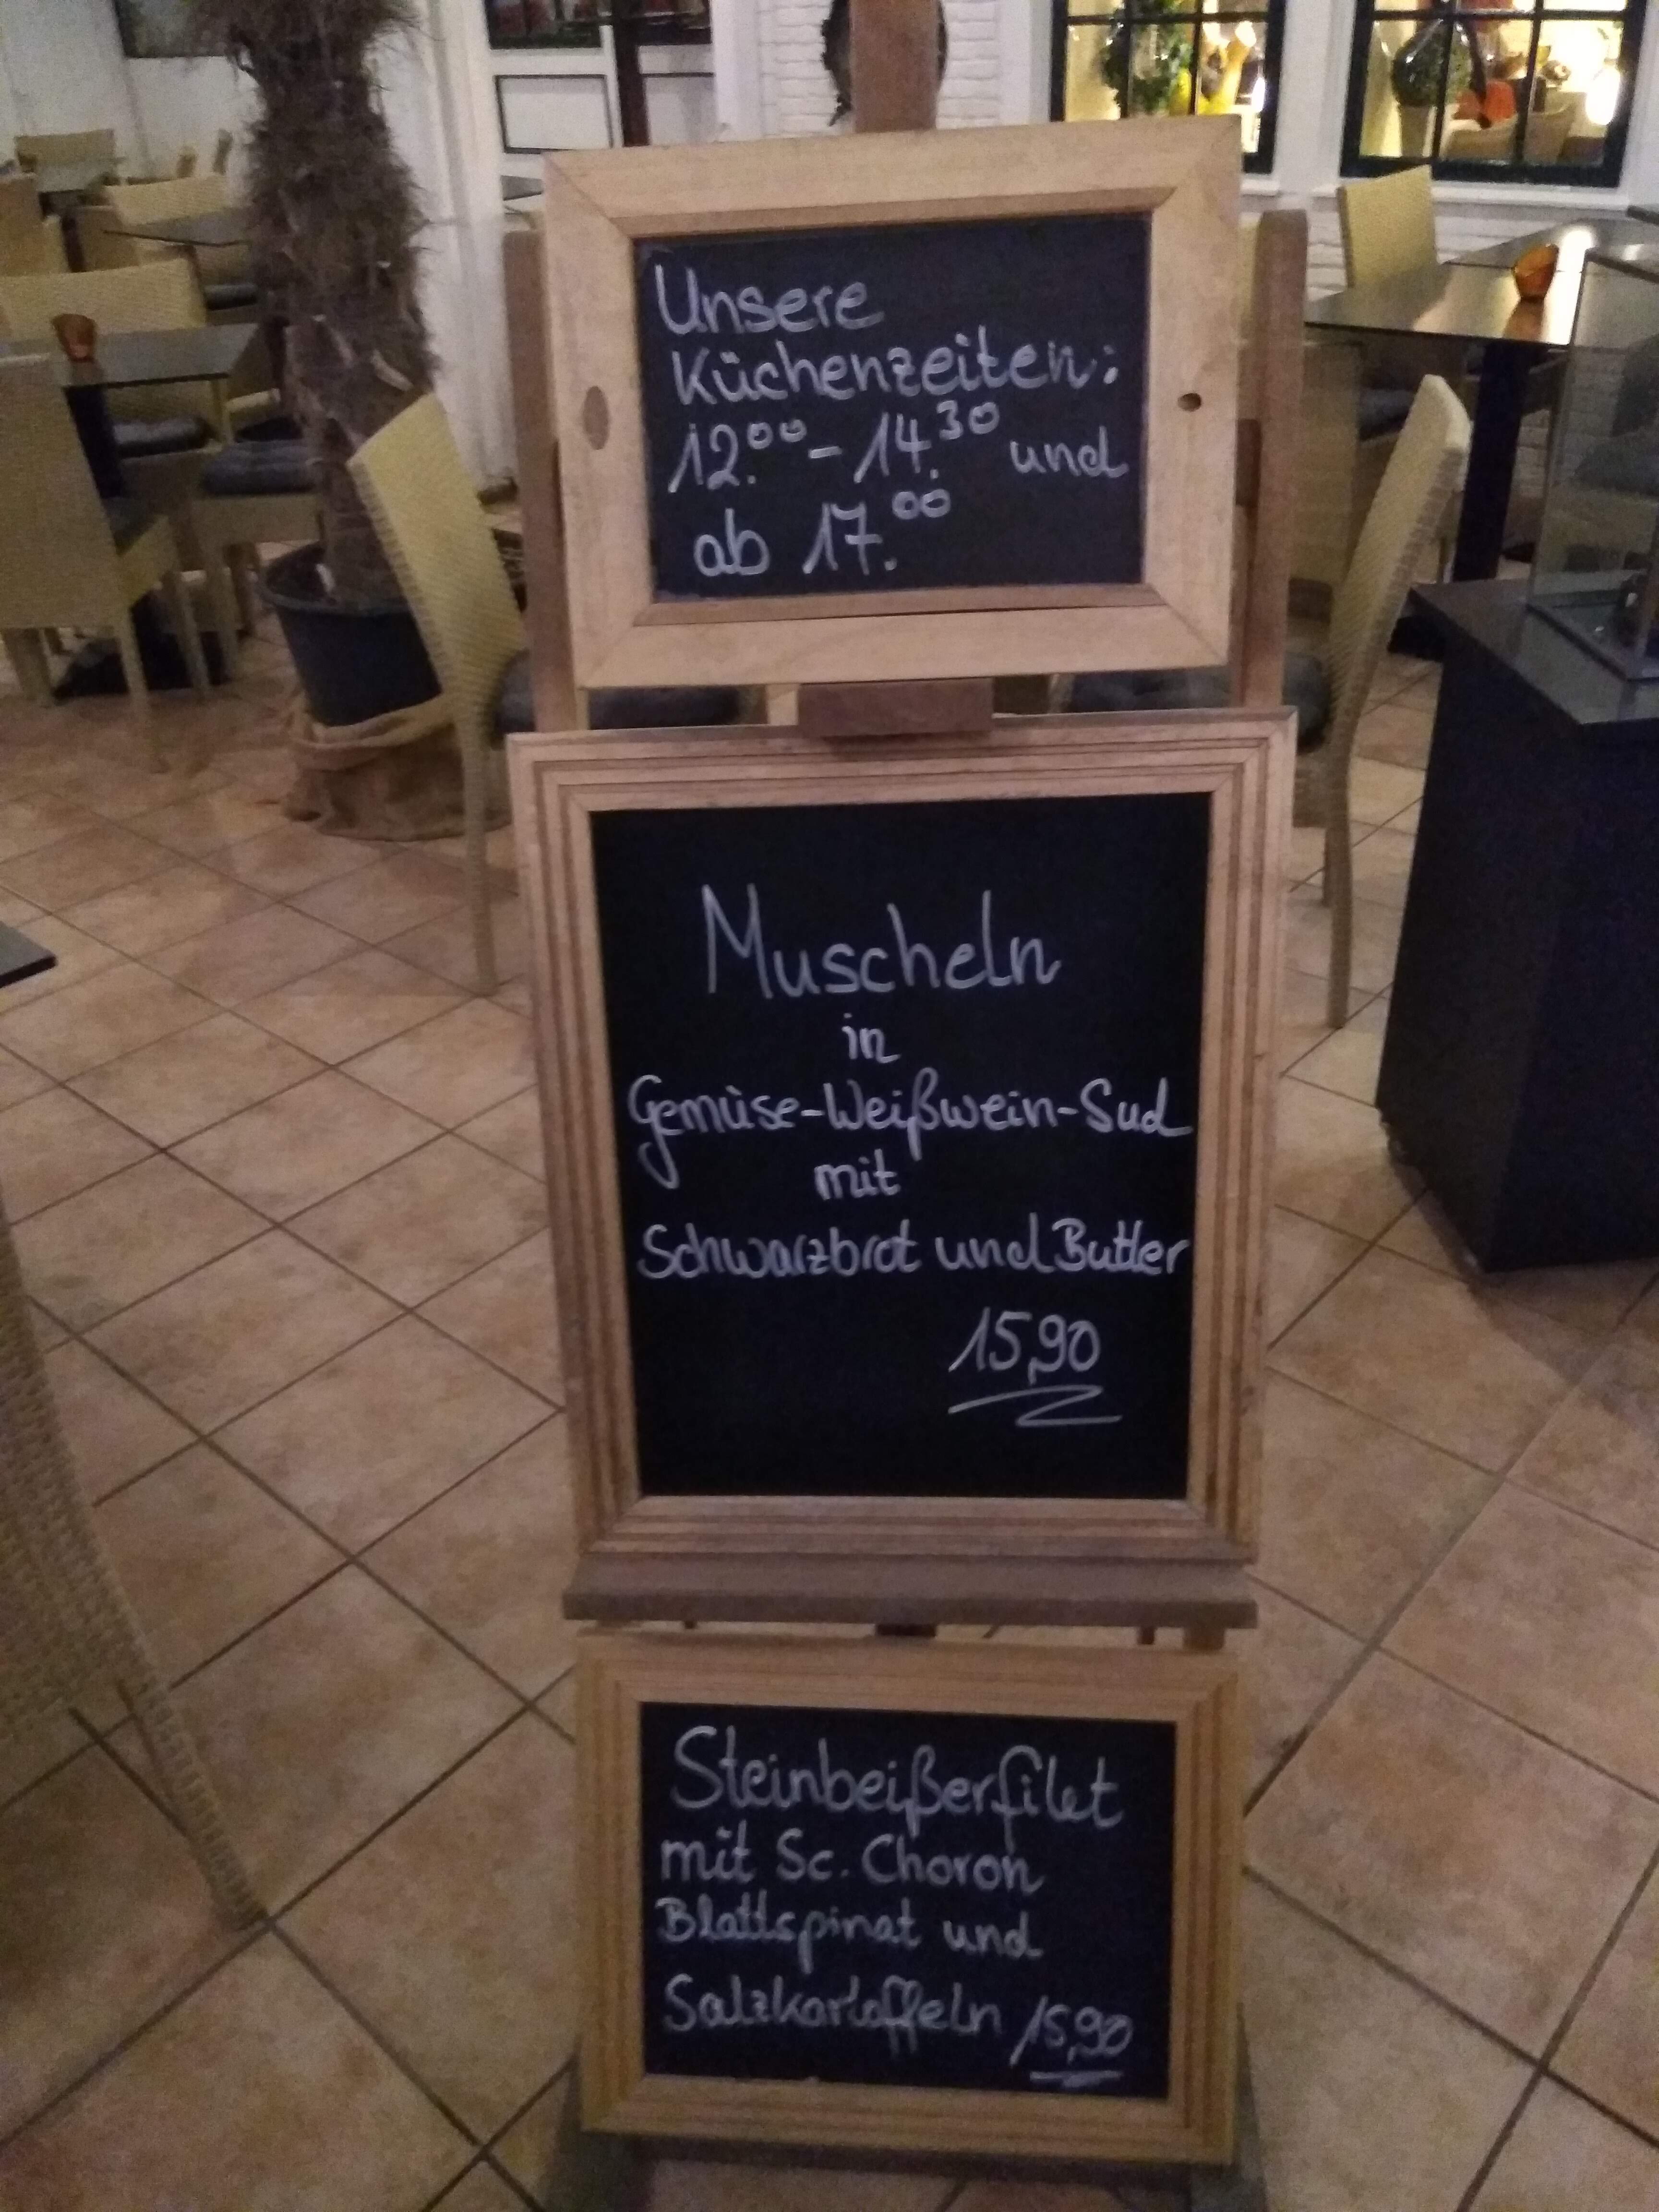 Unsere
Küchenzeiten:
12.00 - 14.30 und
ab 17.00
Muscheln
in
Gemüse-Weißwein-Sud
mit
Schwarzbrot und Butter
15,90
Steinbeißerfilet
mit Sc. Choron
Blattspinat und
Salzkartoffeln 15,90